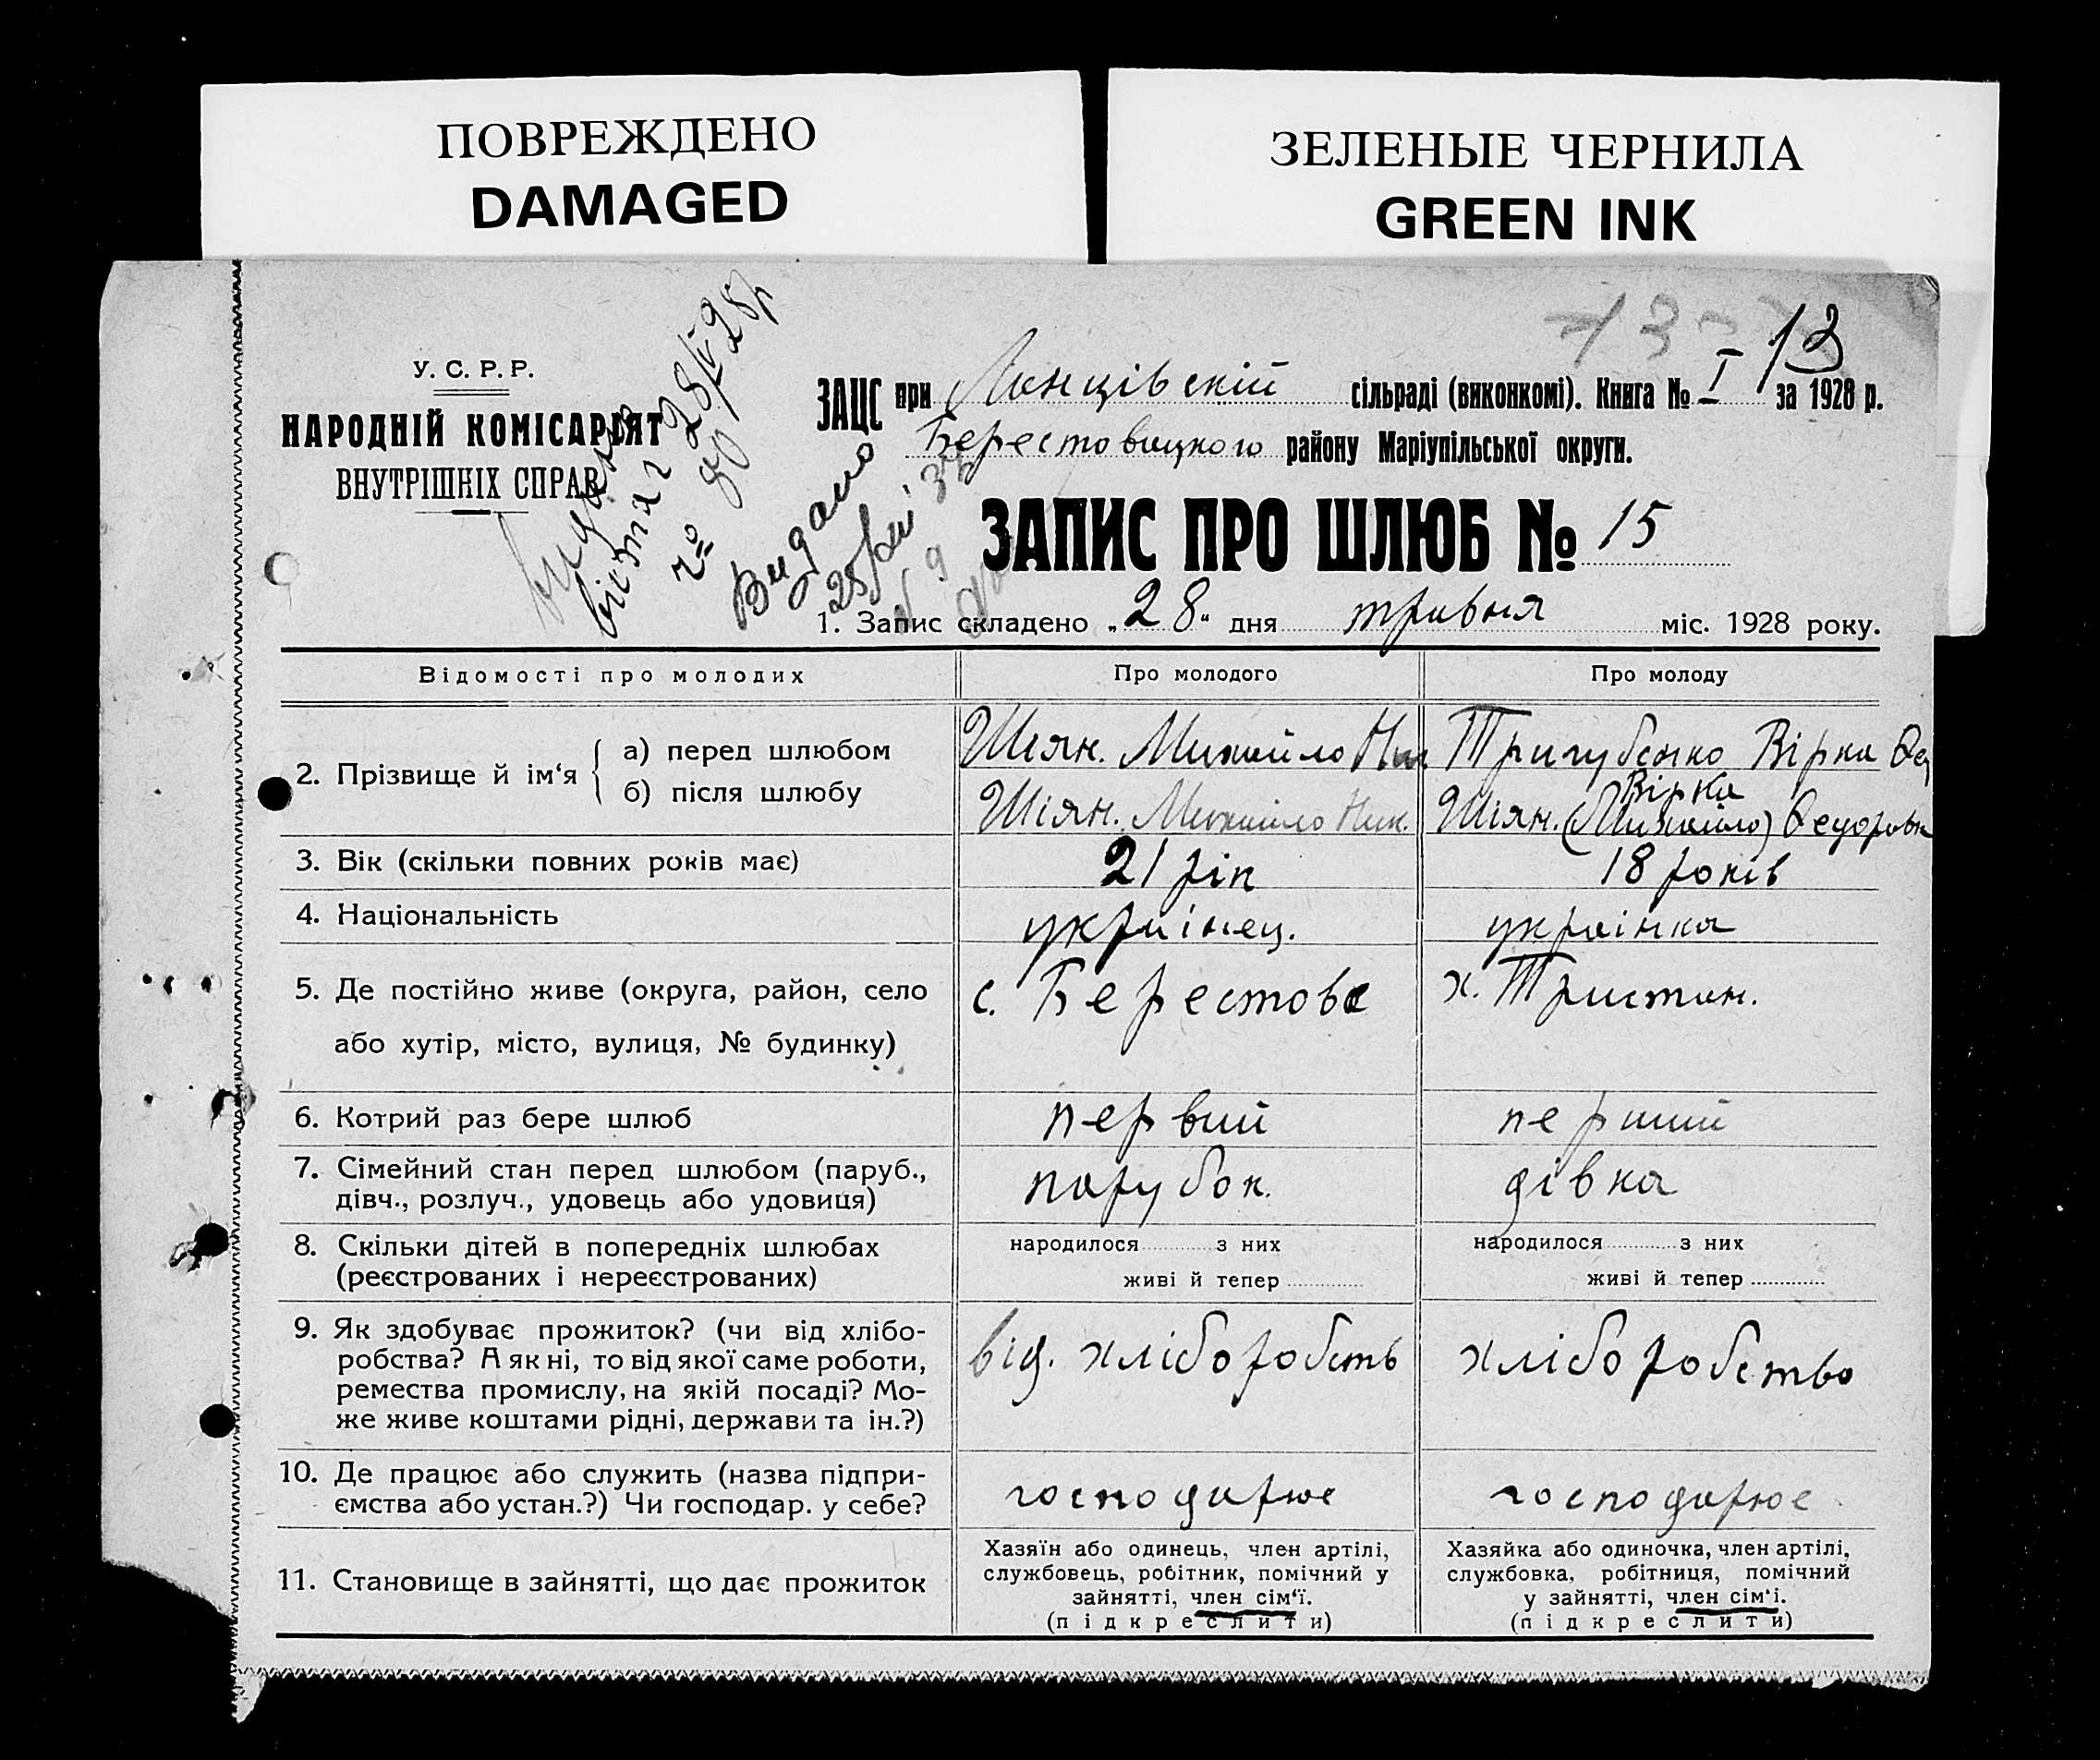 ПОВРЕЖДЕНО
DAMAGED
ЗЕЛЕНЫЕ ЧЕРНИЛА
GREEN INK
13
У. С. Р. Р.
НАРОДНІЙ КОМІСАРІЯТ
ВНУТРІШНІХ СПРАВ
видано
витяг 28/V 28 р
№ 80
Видано
ЗАЦС при Лонцівскій сільраді (виконкомі). Книга № I за 1928 р.
Берестовицкого району Маріупільської округи.
ЗАПИС ПРО ШЛЮБ № 15
1. Запис складено „28“ дня травня міс. 1928 року.
Відомості про молодих
Про молодого
Про молоду
2. Прізвище й ім‘я
а) перед шлюбом
Шіян. Михайло Ник
Тригубенко Вірка Фед
б) після шлюбу
Шіян. Михайло Ник.
Вірка
Шіян. (Михайло) Федоровн
3. Вік (скільки повних років має)
21 рік
18 років
4. Національність
украінец.
украінка
5. Де постійно живе (округа, район, село
або хутір, місто, вулиця, № будинку)
с. Берестове
х. Тристан.
6. Котрий раз бере шлюб
первий
перший
7. Сімейний стан перед шлюбом (паруб.,
дівч., розлуч., удовець або удовиця)
парубок.
дівка
8. Скільки дітей в попередніх шлюбах
(реєстрованих і нереєстрованих)
народилося з них
живі й тепер
народилося з них
живі й тепер
9. Як здобуває прожиток? (чи від хлібо-
робства? А як ні, то від якої саме роботи,
ремества промислу, на якій посаді? Мо-
же живе коштами рідні, держави та ін.?)
від. хліборобств
хліборобство
10. Де працює або служить (назва підпри-
ємства або устан.?) Чи господар. у себе?
господарює
господарює
11. Становище в зайнятті, що дає прожиток
Хазяїн або одинець, член артілі,
службовець, робітник, помічний у
зайнятті, член сім‘ї.
(підкреслити)
Хазяйка або одиночка, член артілі,
службовка, робітниця, помічний
у зайнятті, член сім‘ї.
(підкреслити)